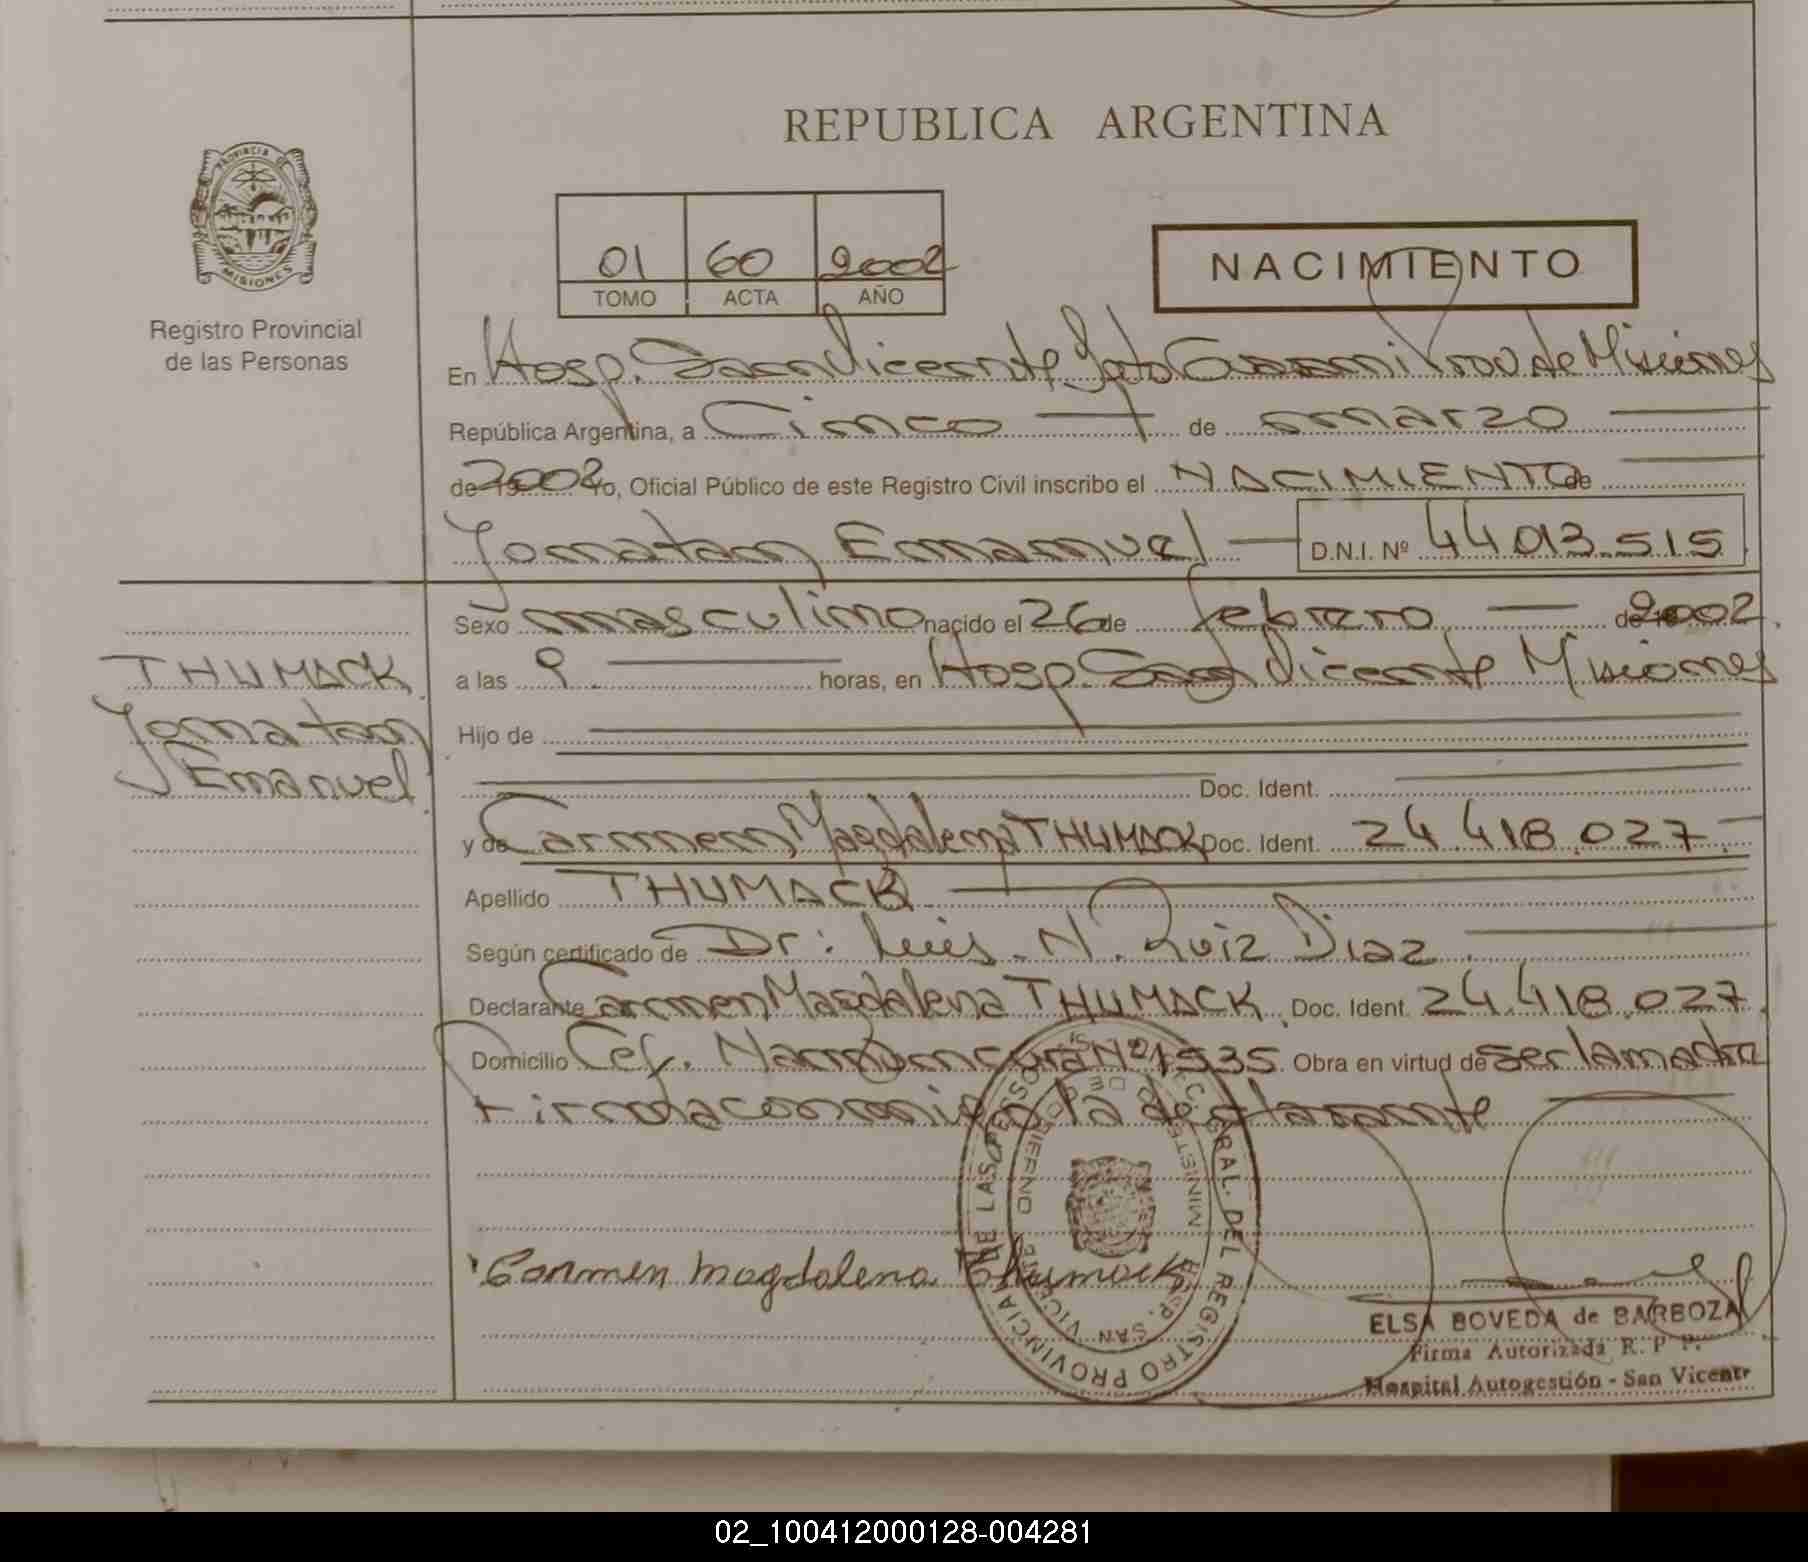 REPUBLICA ARGENTINA
PROVINCIA DE
MISIONES
Registro Provincial
de las Personas
01 60 2002
TOMO ACTA AÑO
NACIMIENTO
En Hosp. San Vicente Gdto Guarani Prov de Misiones
República Argentina, a Cinco de marzo
de 2002 Yo, Oficial Público de este Registro Civil inscribo el NACIMIENTO de
Jonatan Emanuel D.N.I. Nº 44 013 515
Sexo masculino nacido el 26 de febrero de 2002.
THUMACK
Jonatan
Emanuel
a las 9 horas, en Hosp. San Vicente Misiones
Hijo de
Doc. Ident.
y de Carmen Magdalena THUMACK Doc. Ident. 24 418.027
Apellido THUMACK
Según certificado de Dr: Luis. N. Ruiz Diaz
Declarante Carmen Magdalena THUMACK. Doc. Ident. 24.418.027.
Domicilio Cef. Namuncura Nº 1535. Obra en virtud de ser la madre
Firma conmigo la declarante
Carmen Magdalena Thumack
REGISTRO PROVINCIAL DE LAS PERSONAS
GRAL. DEL
MINISTERIO DE GOBIERNO
HOSP. SAN VICENTE
ELSA BOVEDA de BARBOZA
Firma Autorizada R. P P.
Hospital Autogestión - San Vicente
02_100412000128-004281